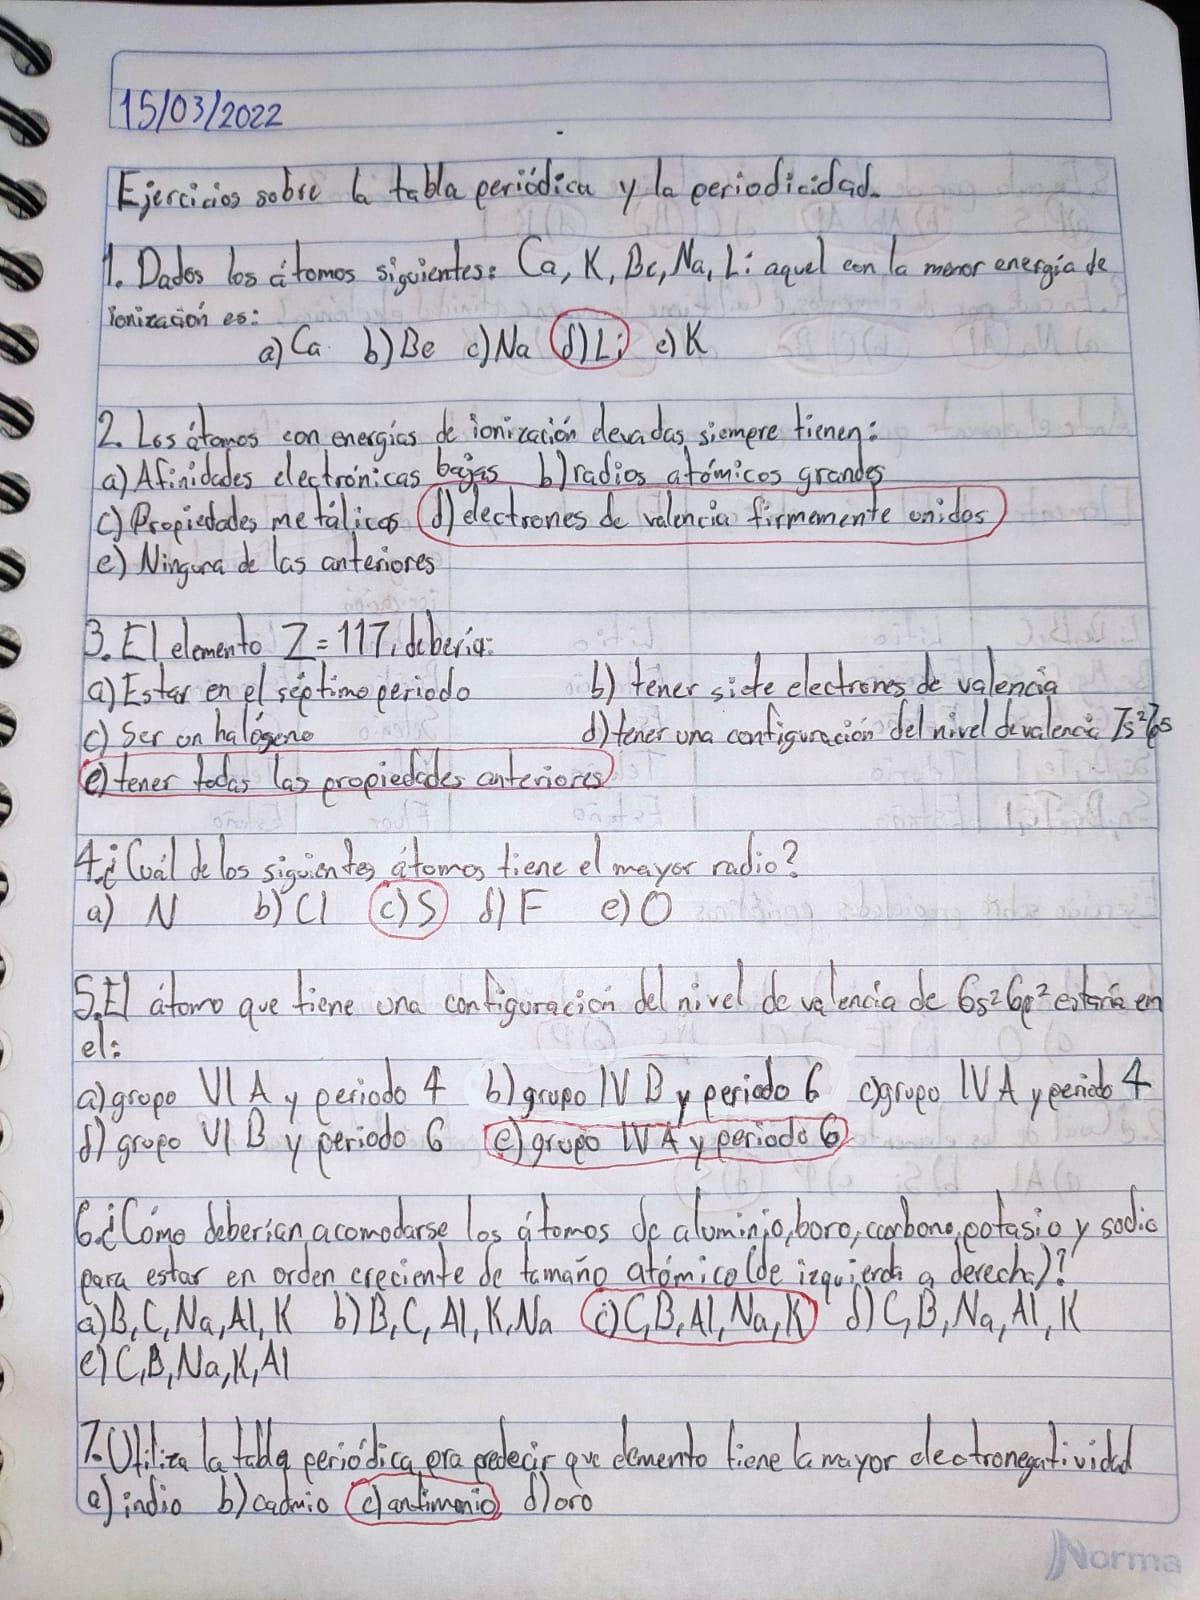 15/03/2022
Ejercicios sobre la tabla periódica y la periodicidad.
1. Dados los átomos siguientes: Ca, K, Be, Na, Li aquel con la menor energía de
ionización es:
a) Ca b) Be c) Na d) Li e) K
2. Los átomos con energías de ionización elevadas siempre tienen:
a) Afinidades electrónicas bajas b) radios atómicos grandes
c) Propiedades metálicas d) electrones de valencia firmemente unidos
e) Ninguna de las anteriores
3. El elemento Z=117, debería:
a) Estar en el séptimo periodo b) tener siete electrones de valencia
c) Ser un halógeno d) tener una configuración del nivel de valencia 7s²
e) tener todas las propiedades anteriores
4. ¿Cuál de los siguientes átomos tiene el mayor radio?
a) N b) Cl c) S d) F e) O
5. El átomo que tiene una configuración del nivel de valencia de 6s² 6p² estaría en
el:
a) grupo VI A y periodo 4 b) grupo IV B y periodo 6 c) grupo IV A y periodo 4
d) grupo VI B y periodo 6 e) grupo IV A y periodo 6
6. ¿Cómo deberían acomodarse los átomos de aluminio, boro, carbono, potasio y sodio
para estar en orden creciente de tamaño atómico (de izquierda a derecha)?
a) B, C, Na, Al, K b) B, C, Al, K, Na c) C, B, Al, Na, K d) C, B, Na, Al, K
e) C, B, Na, K, Al
7. Utiliza la tabla periódica para predecir que elemento tiene la mayor electronegatividad
a) indio b) cadmio c) antimonio d) oro
Norma